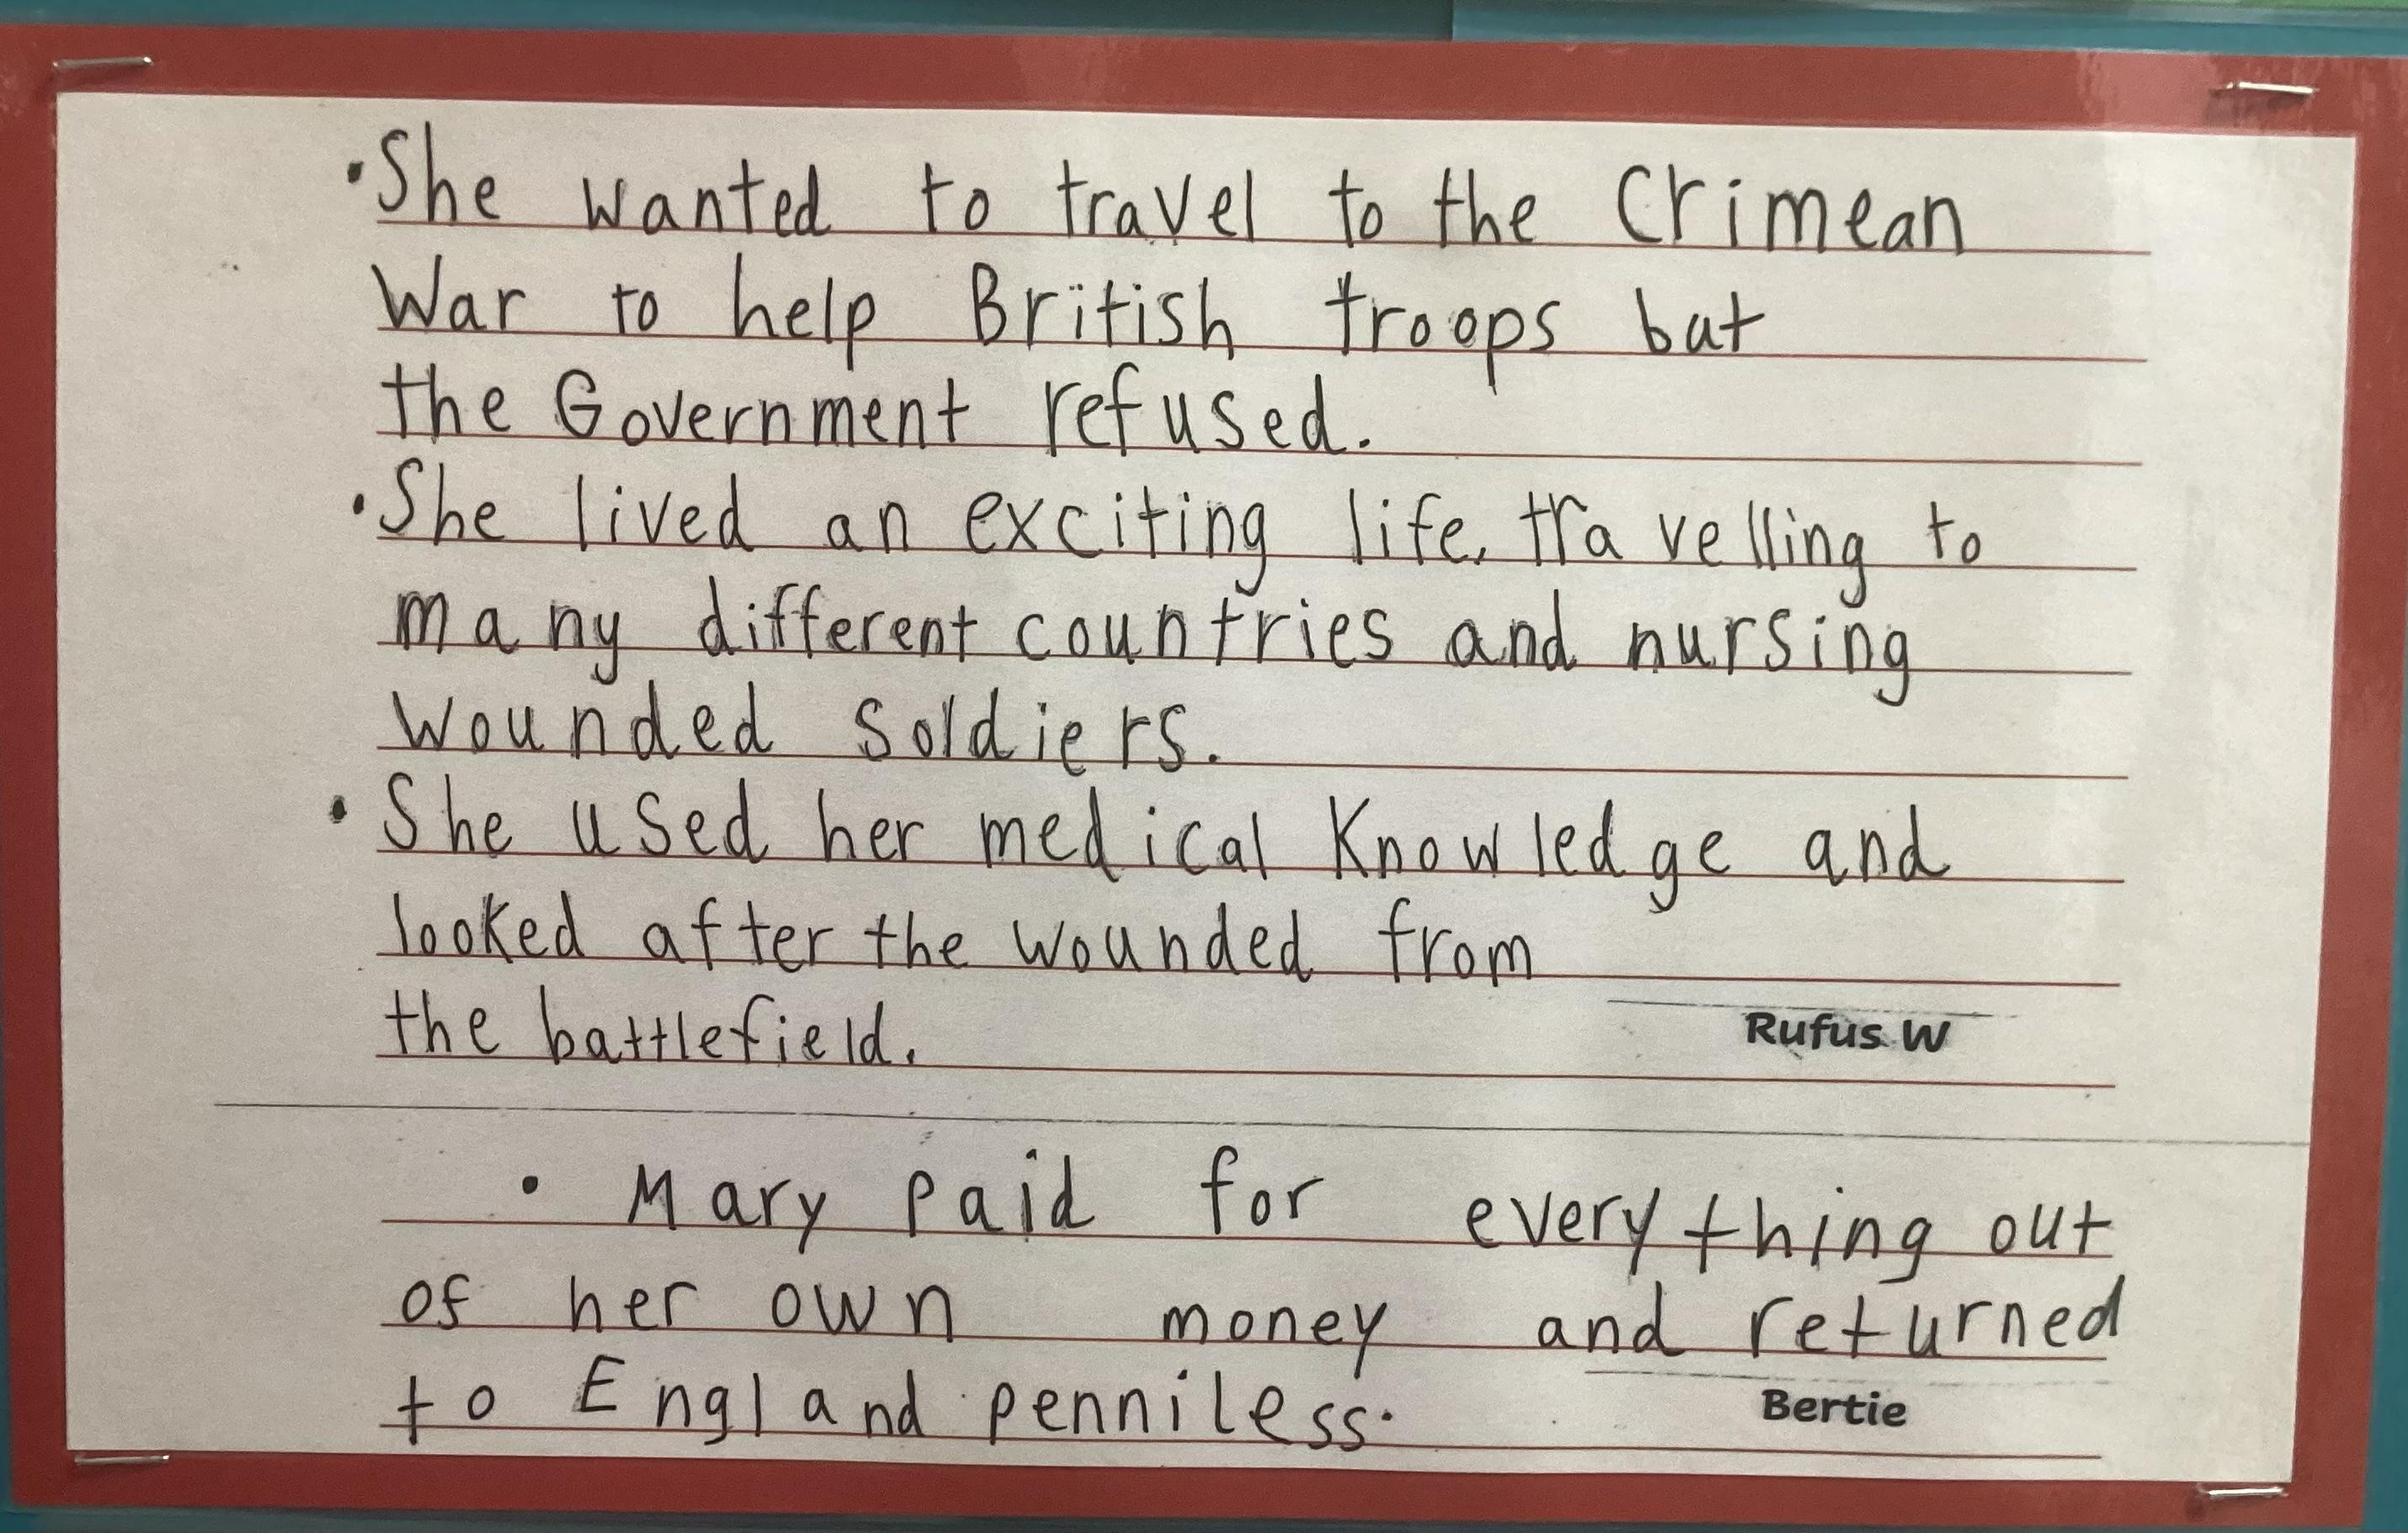 • She wanted to travel to the Crimean
War to help British troops but
the Government refused.
• She lived an exciting life, travelling to
many different countries and nursing
wounded soldiers.
• She used her medical Knowledge and
looked after the wounded from
the battlefield.
Rufus W
• Mary paid for everything out
of her own money and returned
to England penniless.
Bertie